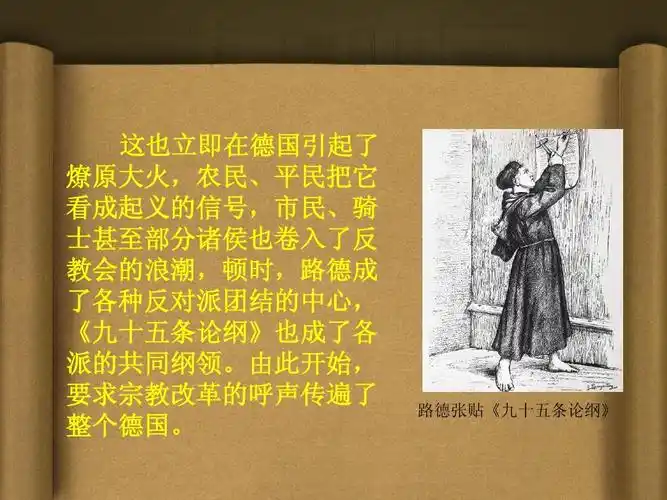 这也立即在德国引起了
燎原大火，农民、平民把它
看成起义的信号，市民、骑
士甚至部分诸侯也卷入了反
教会的浪潮，顿时，路德成
了各种反对派团结的中心，
《九十五条论纲》也成了各
派的共同纲领。由此开始，
要求宗教改革的呼声传遍了
整个德国。
路德张贴《九十五条论纲》